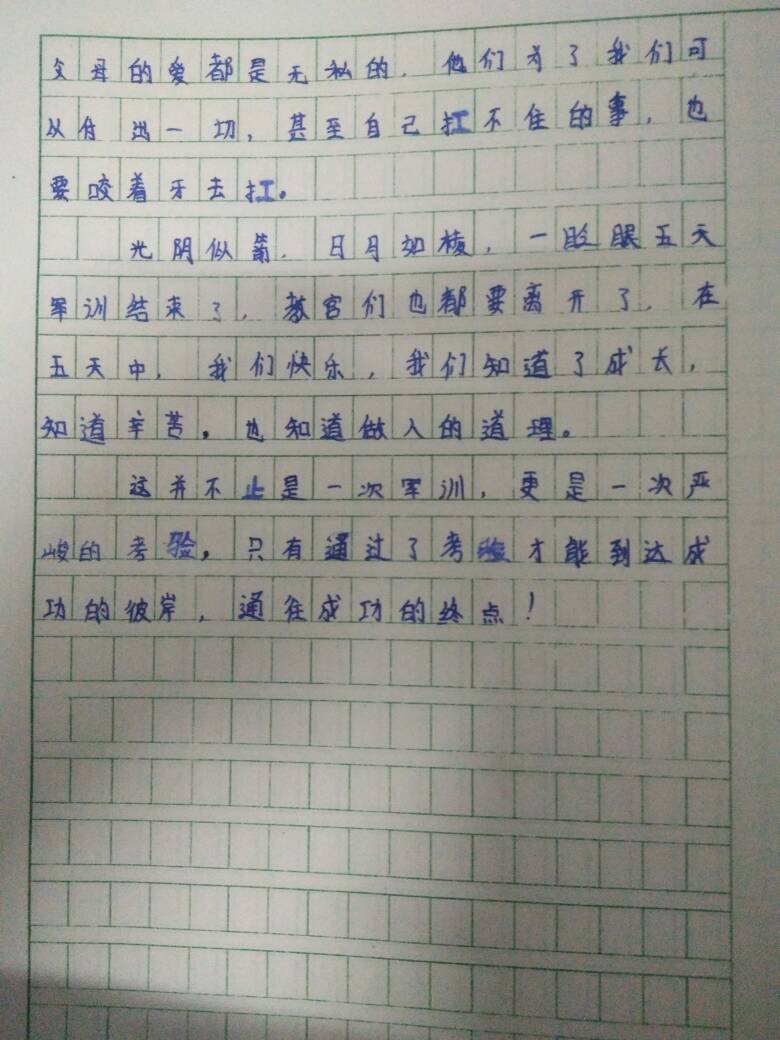 父母的爱都是无私的，他们为了我们可
以付出一切，甚至自己扛不住的事，也
要咬着牙去扛。
光阴似箭，日月如梭，一眨眼五天
军训结束了，教官们也都要离开了，在
五天中，我们快乐，我们知道了成长，
知道辛苦，也知道做人的道理。
这并不止是一次军训，更是一次严
峻的考验，只有通过了考验才能到达成
功的彼岸，通往成功的终点！